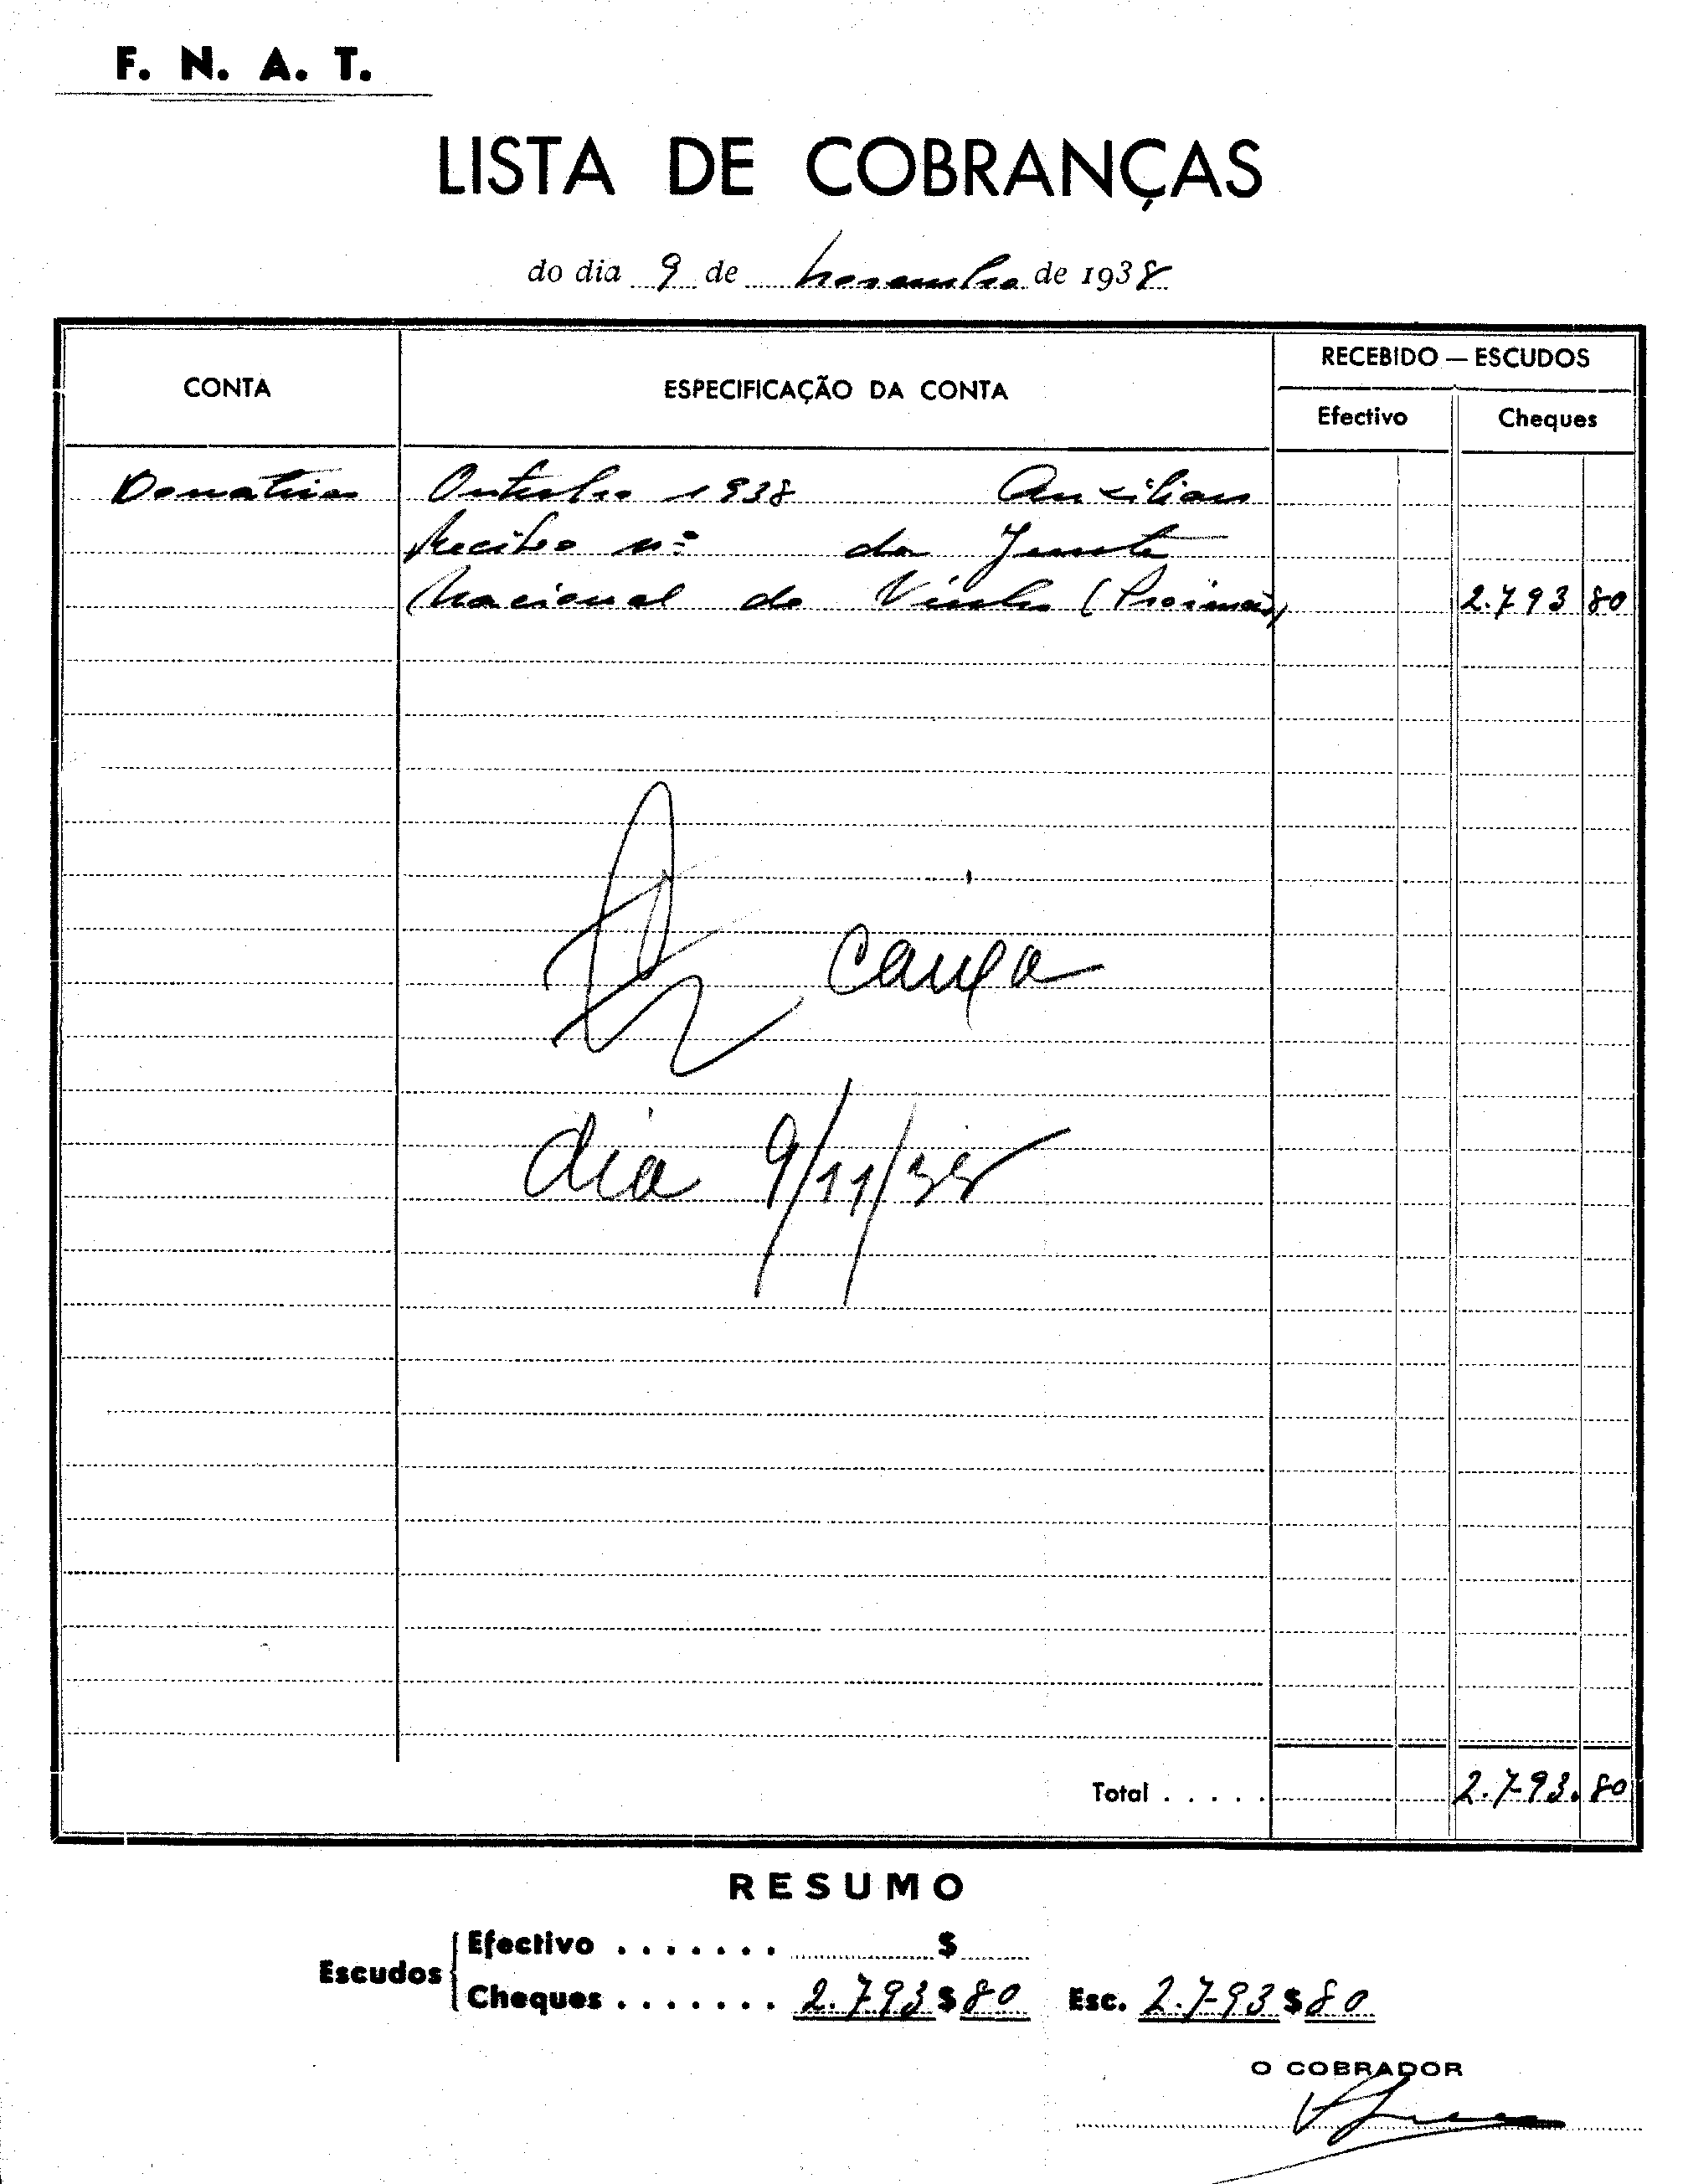 F. N. A. T.
LISTA DE COBRANÇAS
do dia 9 de novembro de 1938
CONTA
ESPECIFICAÇÃO DA CONTA
RECEBIDO — ESCUDOS
Efectivo
Cheques
Donativos Outubro 1938 Auxiliar
Recibo nº da Junta
Nacional do Vinho 2.793 80
caixa
dia 9/11/38
Total . . . . . 2.793.80
RESUMO
Efectivo . . . . . . . $
Escudos
Cheques . . . . . . . 2.793$80 Esc. 2.793$80
O COBRADOR